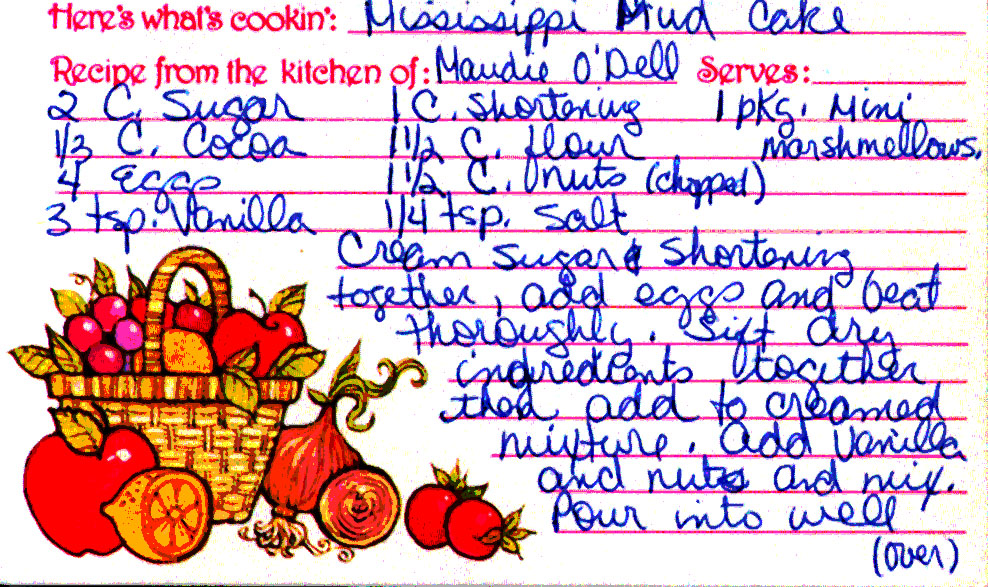 Here's what's cookin': Mississippi Mud Cake
Recipe from the kitchen of: Maudie O'Dell Serves:
2 C. Sugar 1 C. Shortening 1 pkg. Mini
1/3 C. Cocoa 1 1/2 C. flour marshmellows.
4 Eggs 1 1/2 C. nuts (chopped)
3 tsp. Vanilla 1/4 tsp. Salt
Cream Sugar & Shortening
together, add eggs and beat
thoroughly. Sift dry
ingredients together
then add to creamed
mixture. Add Vanilla
and nuts and mix.
Pour into well
(over)